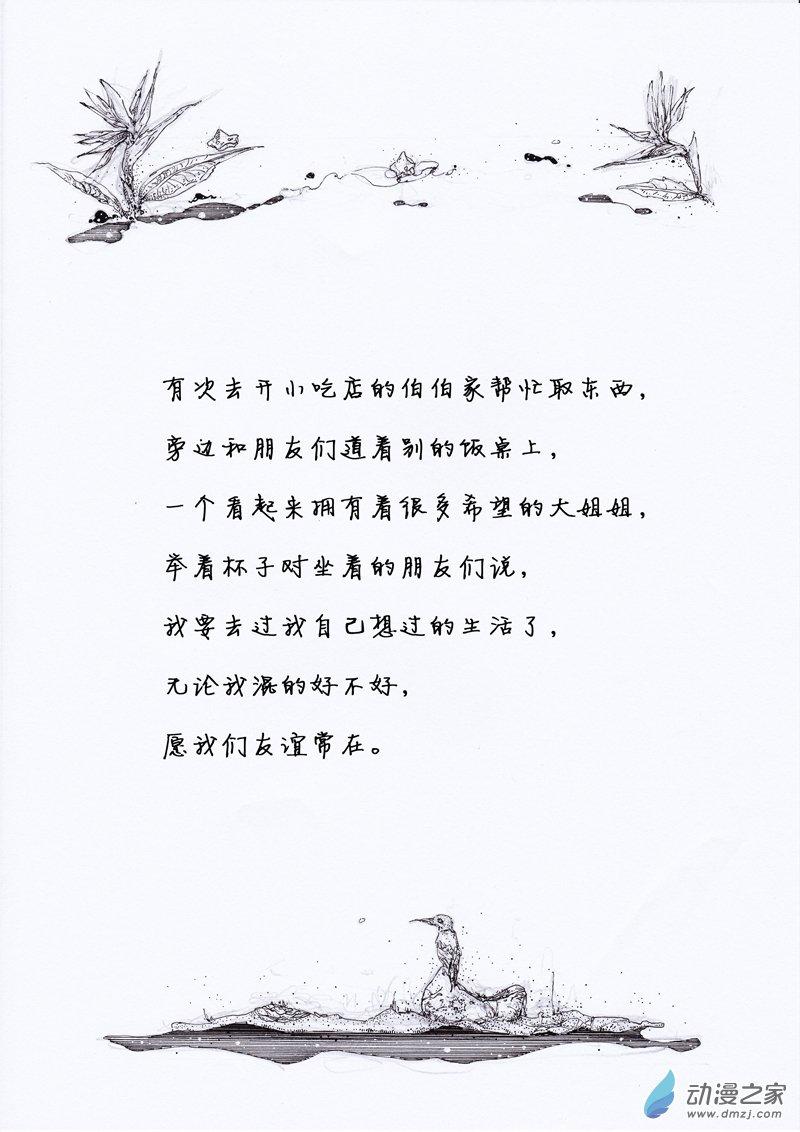 有次去开小吃店的伯伯家帮忙取东西，
旁边和朋友们道着别的饭桌上，
一个看起来拥有着很多希望的大姐姐，
举着杯子对坐着的朋友们说，
我要去过我自己想过的生活了，
无论我混的好不好，
愿我们友谊常在。
动漫之家
www.dmzj.com